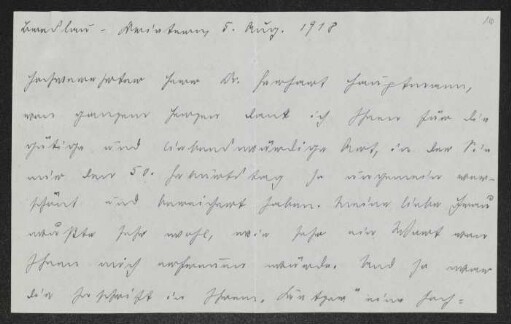 10
Breslau - Kleintein, 5. Aug. 1918
Hochverehrter Herr Dr. Gerhart Hauptmann,
von ganzem Herzen dank ich Ihnen für die
gütige und liebenswürdige Art, in der Sie
mir den 50. Geburtstag so ungemein ver-
schönt und bereichert haben. Meine liebe Frau
wußte sehr wohl, wie sehr ein Wort von
Ihnen mich erfreuen würde. Und so war
die Inschrift in Ihrem „Ketzer" eine Hoch=